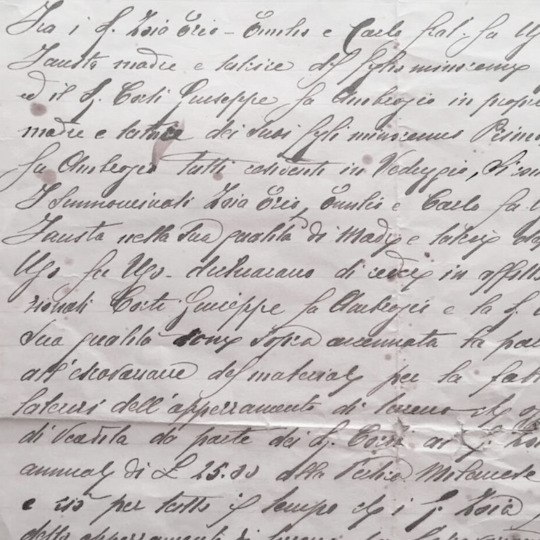 Tra i S. Zoia Ezio - Emilio e Carlo frat. fu Ug
Fausta madre e tutrice del figlio minorenne
ed il S. Corti Giuseppe fu Ambrogio in propri
madre e tutrice dei suoi figli minorenni Primo
fu Ambrogio tutti residenti in Veduggio, Si con
I summenzionati Zoia Ezio, Emilio e Carlo fu
Fausta nella sua qualità di Madre e tutrice del
Ugo fu Ugo - dichiarano di cedere in affitto
Corti Giuseppe fu Ambrogio e la S.
sua qualità sopra accennata la par
all'escavazione del materiale per la fab
dell'appezzamento di terreno
di da parte dei S. Corti ai S. Zoia
annuali di L 25.00 alla Pertica Milanese
e ciò per tutto il tempo che i S. Zoia
dello appezzamento di terreno